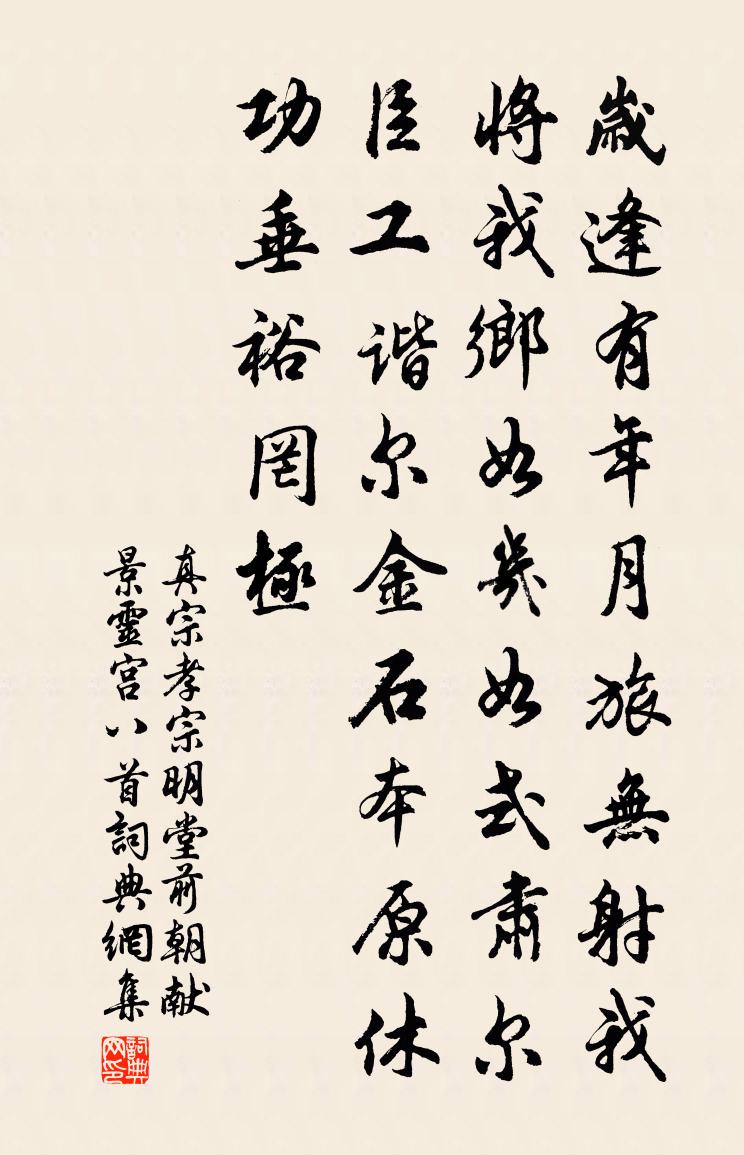 歲逢有年月旅無射我
將我鄉如幾如式肅尔
臣工谐尔金石本原休
功垂裕罔極
真宗孝宗明堂前朝献
景靈宫八首詞典網集
詞典网印